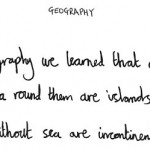 GEOGRAPHY
graphy we learned that c
a round them are islands
ithout sea are incontinen